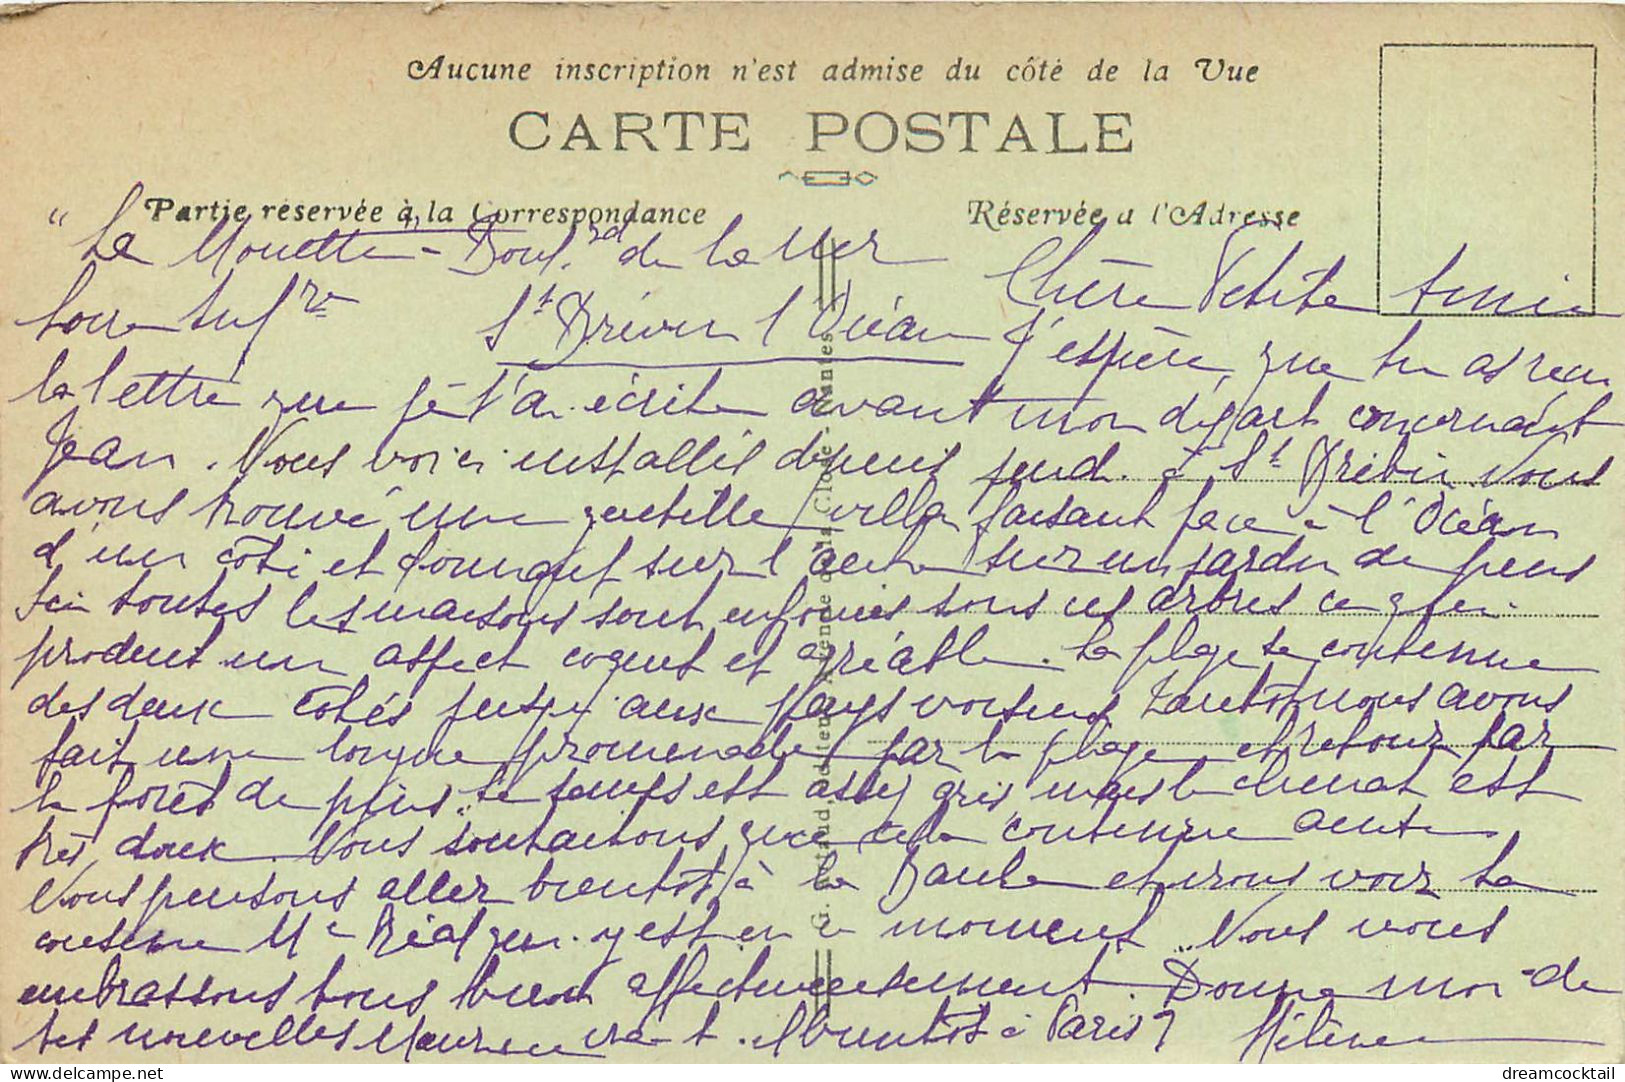 Aucune inscription n'est admise du côté de la Vue
CARTE POSTALE
Partie réservée à la Correspondance
Réservée a l'Adresse
"La Mouette" - Boul.rd de la Mer
Loire Infre St Brévin l'Océan
Chère Petite Amie
J'espère que tu as reçu
la lettre que je t'ai écrite avant mon départ concernant
Jean. Nous voici installés depuis jeudi à St Brévin. Nous
avons trouvé une gentille villa faisant face à l'Océan
d'un côté et donnant sur l'autre sur un jardin de pins
Ici toutes les maisons sont enfouies sous ces arbres ce qui
produit un aspect coquet et agréable. La plage se continue
des deux côtés jusqu'aux pays voisins Tantôt nous avons
fait une longue promenade par la plage et retour par
la forêt de pins. Le temps est assez gris mais le climat est
très doux. Nous souhaitons que cela continue ainsi
Nous pensons aller bientôt à la Baule et irons voir ta
cousine Me qui y est en ce moment. Nous vous
embrassons tous bien affectueusement. Donne moi de
tes nouvelles Maurice à Paris? Hélène
G. Artaud, éditeur, Agence de la Cloche - Nantes
dreamcocktail